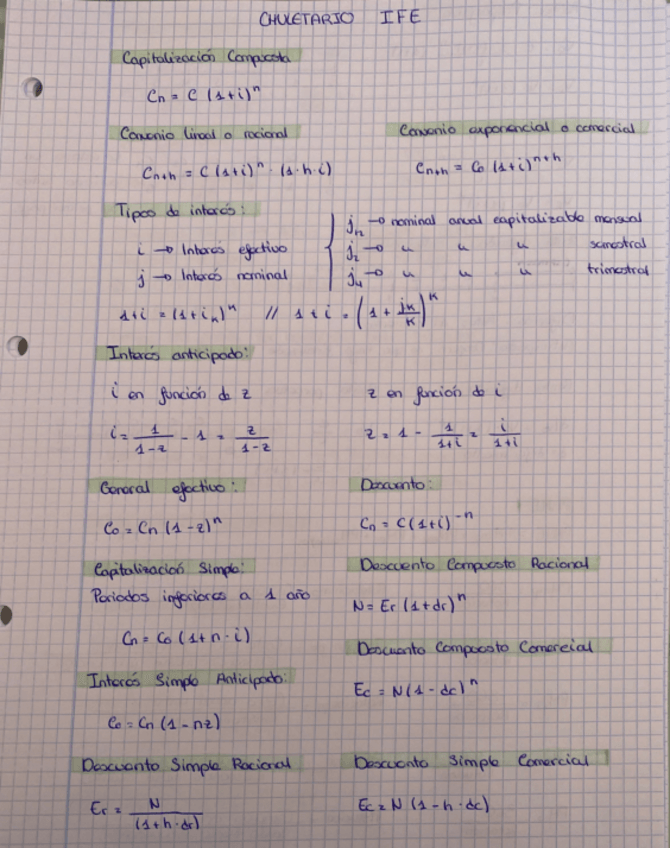 CHULETARIO IFE
Capitalización Compuesta
Cn = C (1+i)^n
Convenio lineal o racional
Cn+h = C (1+i)^n · (1·h·i)
Convenio exponencial o comercial
Cn+h = C0 (1+i)^n+h
Tipos de interés:
i → Interés efectivo
j → Interés nominal
j12 → nominal anual capitalizable mensual
j2 → " " " semestral
j4 → " " " trimestral
1+i = (1+iK)^K // 1+i = (1 + jK/K)^K
Interés anticipado:
i en función de z
i = 1/(1-z) - 1 = z/(1-z)
z en función de i
z = 1 - 1/(1+i) = i/(1+i)
General efectivo:
C0 = Cn (1-z)^n
Descuento:
Cn = C(1+i)^-n
Capitalización Simple:
Periodos inferiores a 1 año
Cn = C0 (1+n·i)
Descuento Compuesto Racional
N = Er (1+dr)^n
Descuento Compuesto Comercial
Ec = N(1-dc)^n
Interés Simple Anticipado:
C0 = Cn (1-nz)
Descuento Simple Racional
Er = N/(1+h·dr)
Descuento Simple Comercial
Ec = N (1-h·dc)